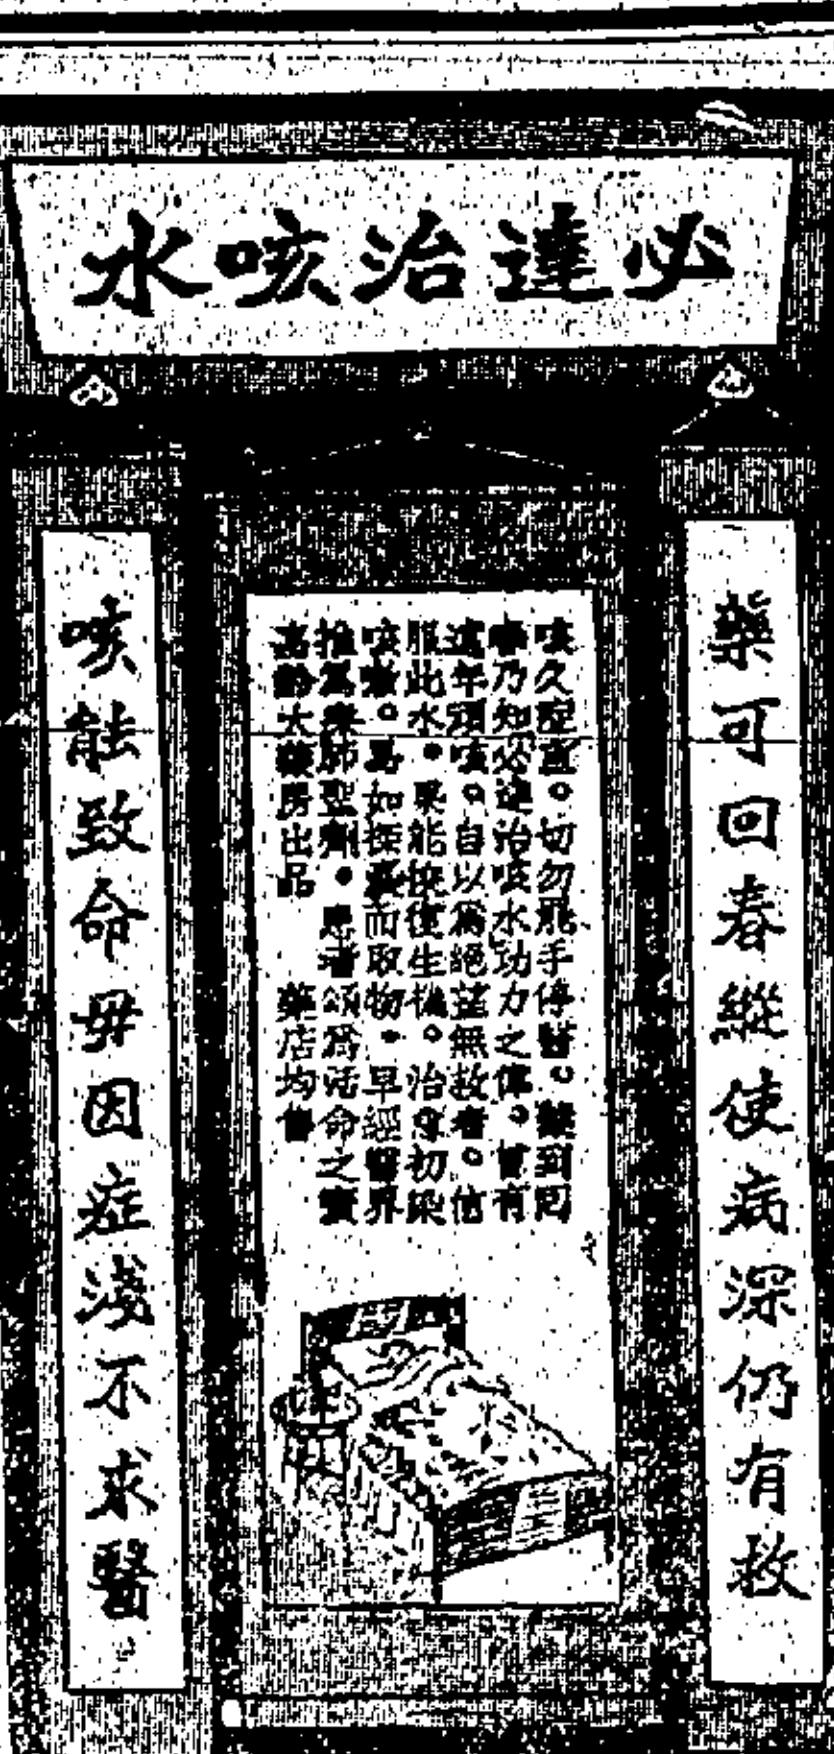 必達治咳水
藥可回春縱使病深仍有救
咳久症重。切勿飛手停醫。到回
乃知必達治咳水功力之偉。曾有
遠年頑咳。自以為絕望無救者。信
服此水。果能挽復生機。治初染
咳嗽。易如探囊而取物。早經醫界
推為療肺聖劑。患者頌為活命之寶
高齡大藥房出品 藥店均售
咳能致命毋因症淺不求醫